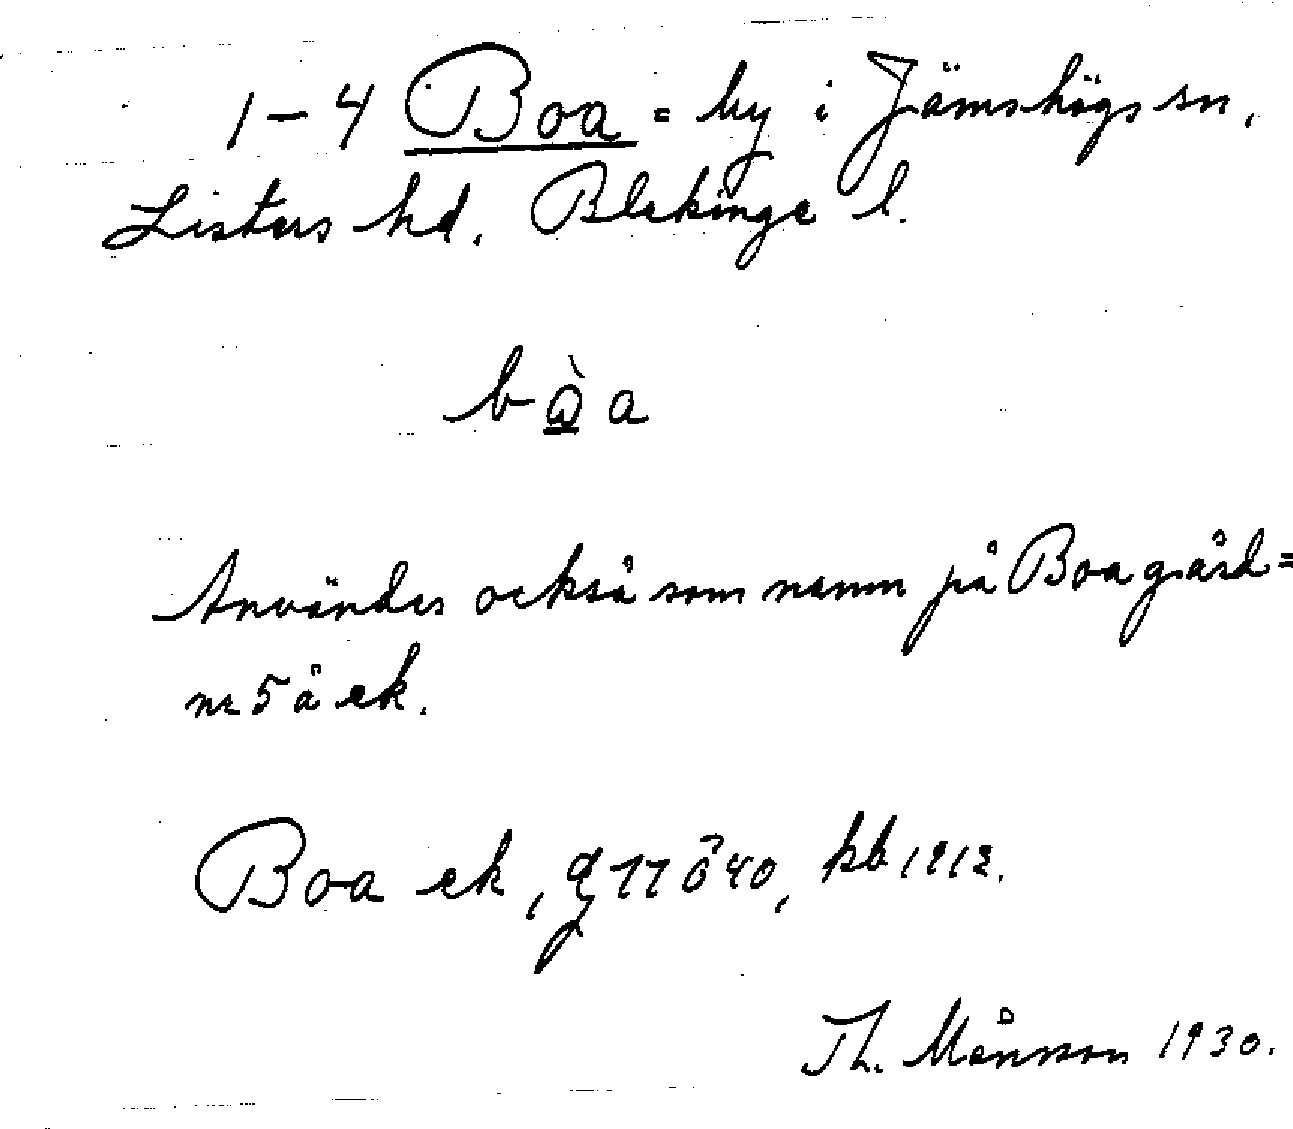 1-4 Boa = by i Jämshögs sn,
Listers hd. Blekinge l.
bò̲a
Användes också som namn på Boagård=
nr 5 å ek.
Boa ek, g 77 ö 40, kb 1912.
Th. Månsson 1930.